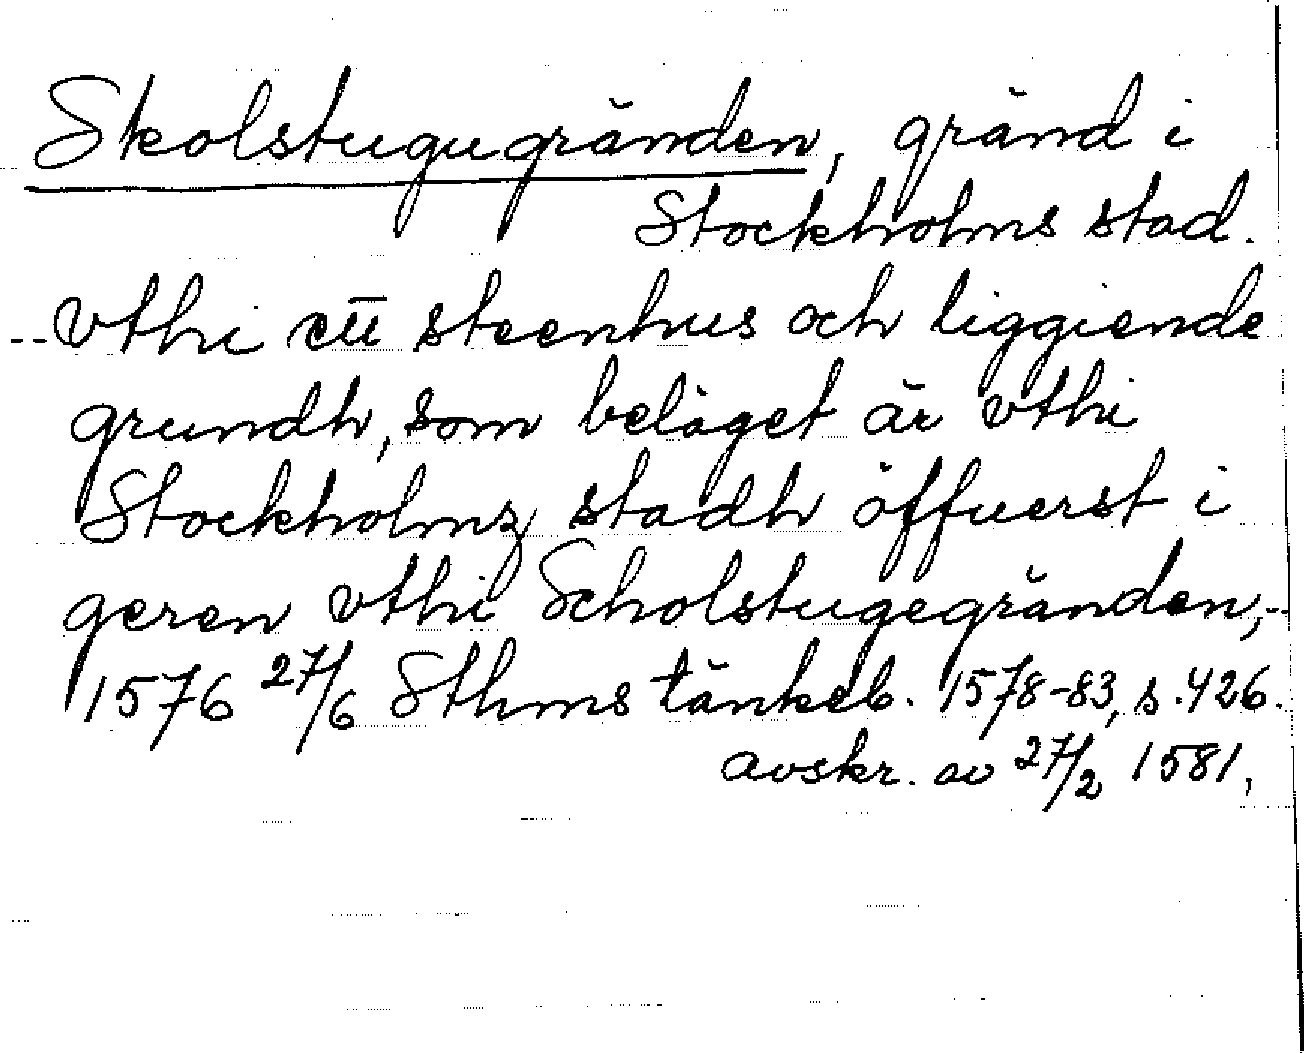 Skolstugugränden, gränd i
Stockholms stad.
--vthi ett steenhus och liggiende
grundh, som beläget är vthi
Stockholmz stadh öffuerst i
geren vthi Scholstugegränden,--
1576 27/6 Sthms tänkeb. 1578-83, s. 426.
avskr. av 27/2 1581,